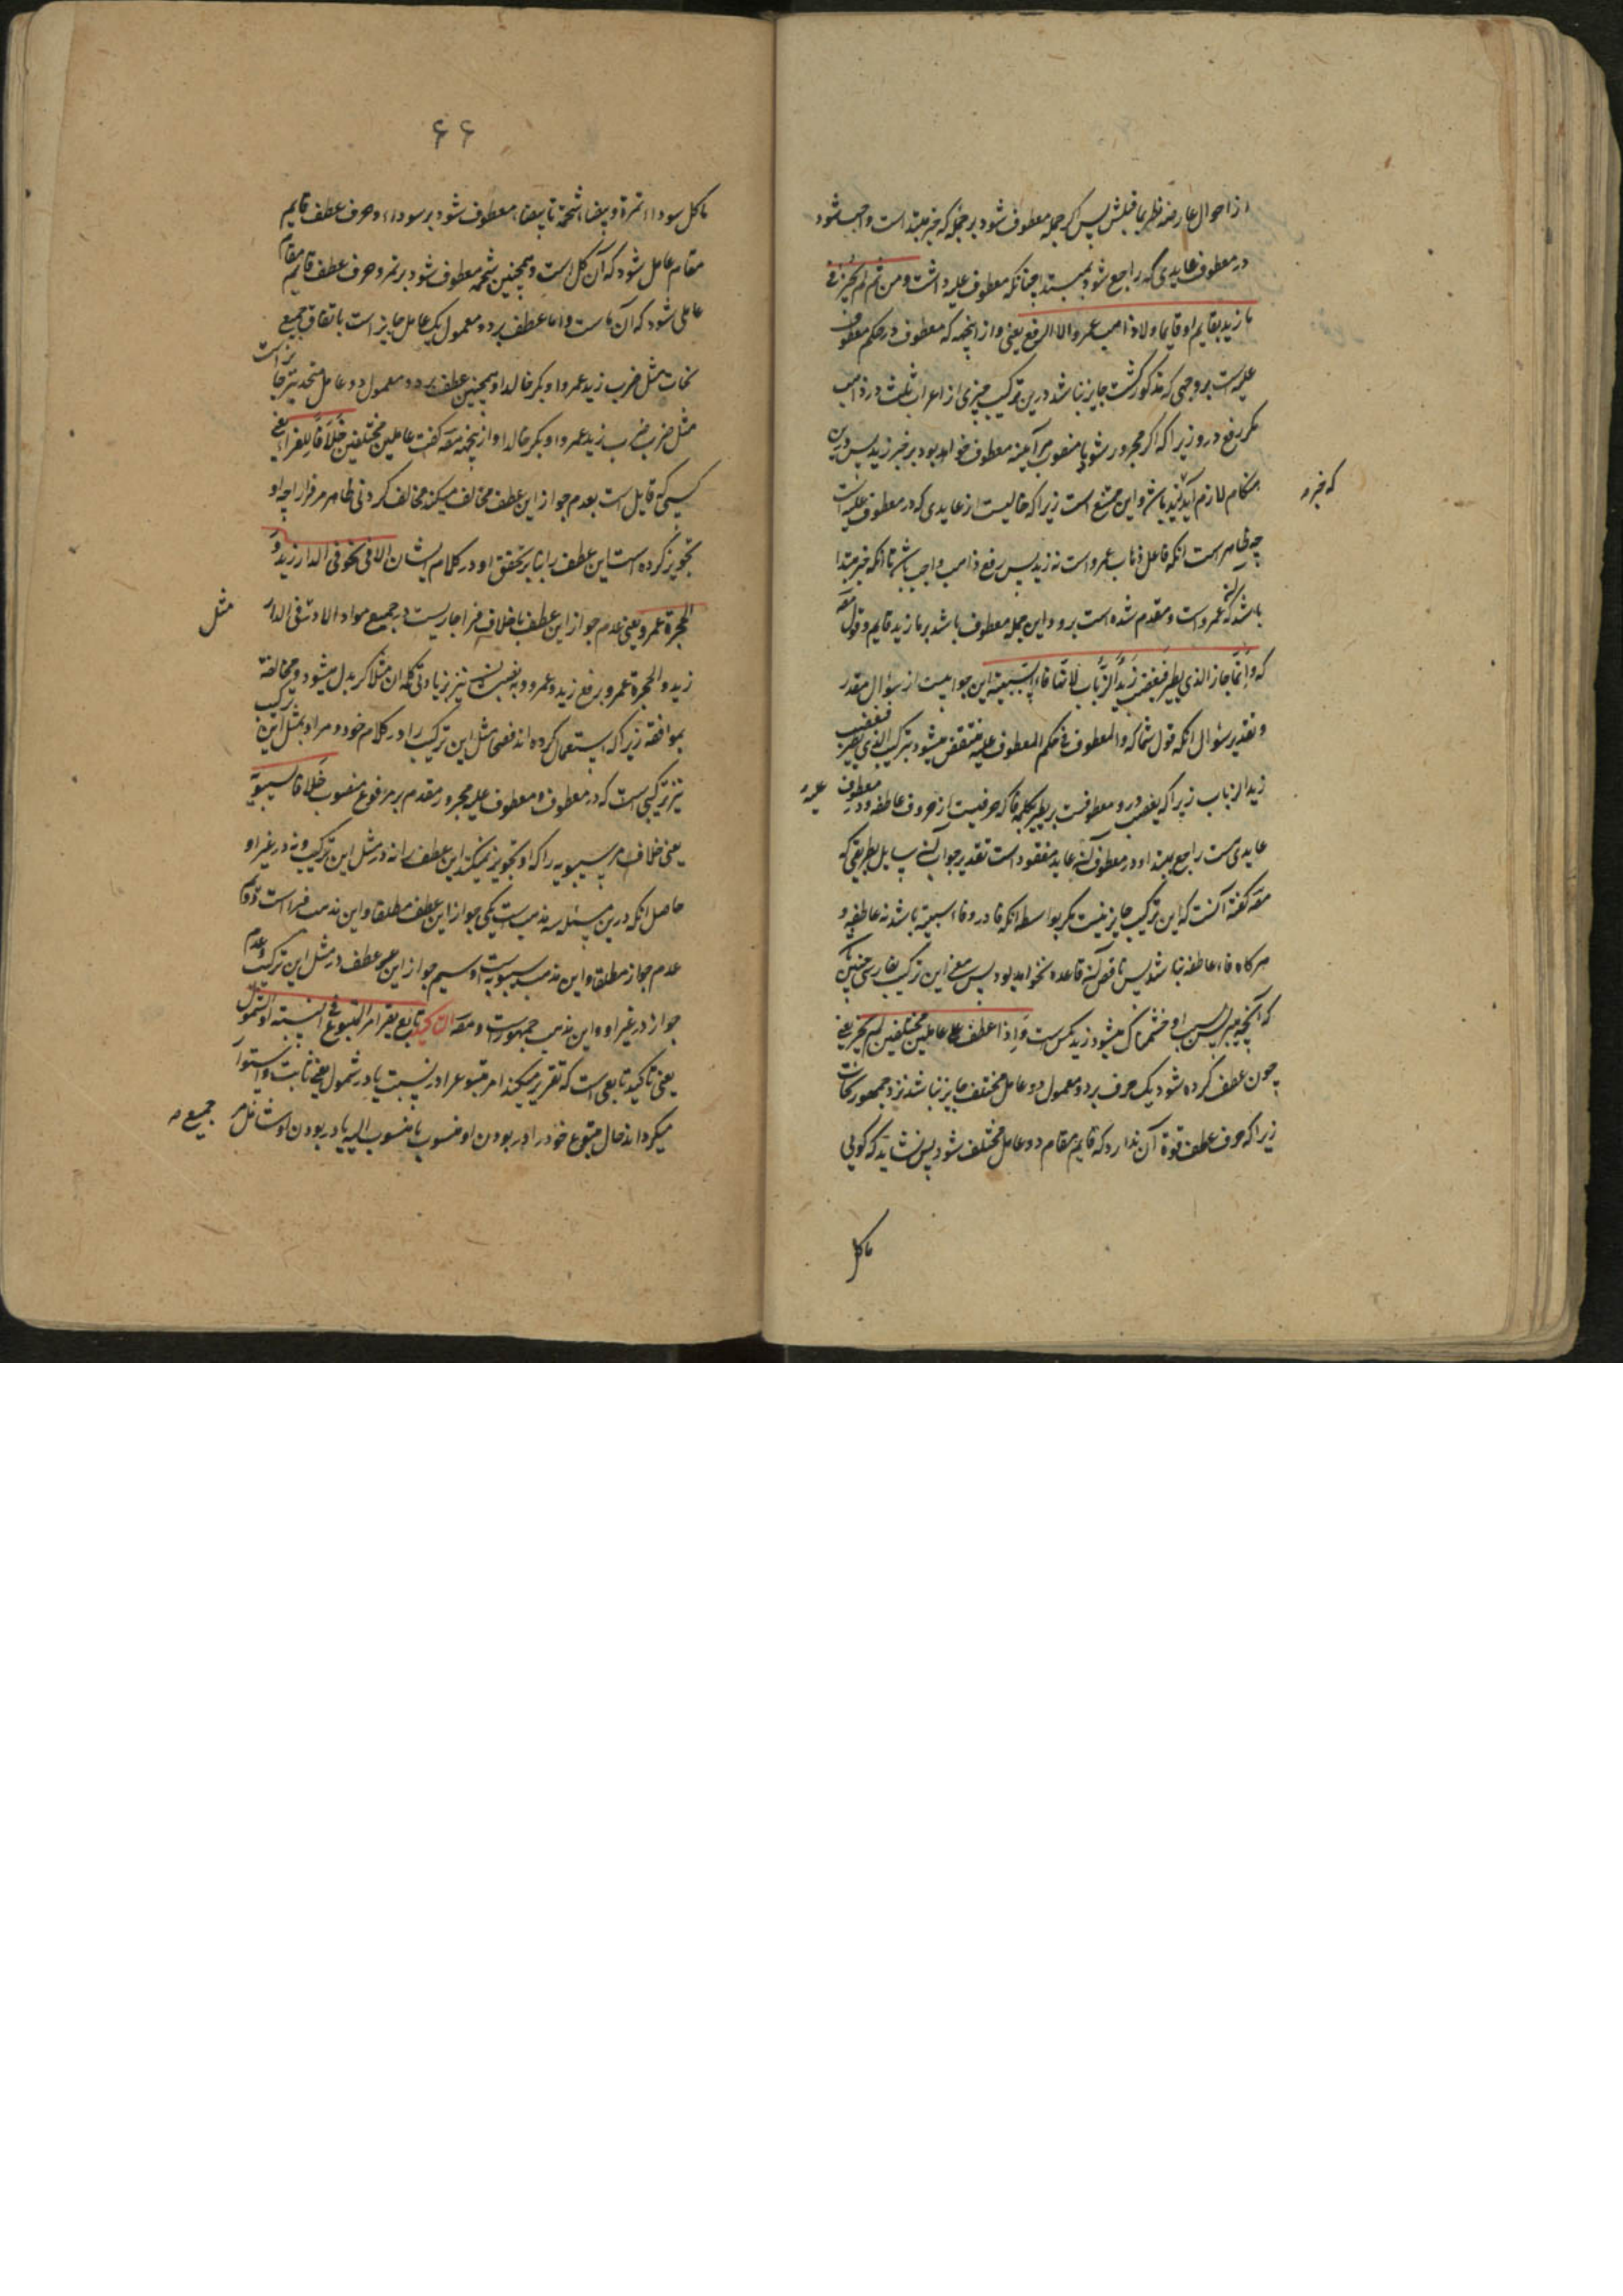 از احوال عارضه نظر بما قبلش پس اگر جمله معطوف شود بر جمله که خبر مبتدا است واجب شود
در معطوف عایدی که راجع شود بمبتدا چنانکه معطوف علیه داشت و من ثم لم یجز فی
ما زید بقایم او قایما ولا ذاهب عمرو الا الرفع یعنی و از اینجهه که معطوف در حکم معطوف
علیه است بر وجهی که مذکور گشت جایز نباشد درین ترکیب چیزی از اعراب ثلث در ذاهب
مگر رفع درو زیراکه اگر مجرور شود یا منصوب هر آینه معطوف خواهد بود بر خبر زید پس درین
هنگام لازم آید که خبر زید باشد و این ممتنع است زیراکه خالیست از عایدی که در معطوف علیه است
که خبر و
چه ظاهر است انکه فاعل ذاهب عمرو است نه زید پس رفع ذاهب واجب باشد تا انکه خبر مبتدا
باشد که عمرو است و مقدم شده است برو و این جمله معطوف باشد بر ما زید قایم و قول مصه
که وانما جاز الذی یطیر فیغضب زید الذباب لانها فاء السببیة این جوابیست از سؤال مقدر
و تقدیر سؤال انکه قول شما که والمعطوف فی حکم المعطوف علیه منتقض میشود بترکیب الذی یطیر فیغضب
زید الذباب زیراکه یغضب درو معطوفست بر یطیر بکلمه فا که حرفیست از حروف عاطفه و در معطوف
علیه
عایدی هست راجع بمبتدا و در معطوف آن عاید مفقود است تقدیر جواب آن سایل بطریقی که
مصه گفته آنست که این ترکیب جایز نیست مگر بواسطه انکه فا درو فاء سببیة باشد نه عاطفه و
هرگاه فاء عاطفه نباشد پس ناقض آن قاعده نخواهد بود پس معنی این ترکیب بفارسی چنین باشد
که آنچه میپرد پس بسبب او خشمناک میشود زید مگس است و اذا عطف علی عاملین مختلفین لم یجز یعنی
چون عطف کرده شود بیک حرف بر دو معمول دو عامل مختلف جایز نباشد نزد جمهور نحات
زیراکه حرف عطف قوة آن ندارد که قایم مقام دو عامل مختلف شود پس نشاید که گویی
ما کل
۶۶
ما کل سوداء تمرة و بیضاء شحمة تا بیضاء معطوف شود بر سوداء و حرف عطف قایم
مقام عامل شود که آن کل است و همچنین شحمه معطوف شود بر تمره و حرف عطف قایم مقام
عاملی شود که آن ما است و اما عطف بر دو معمول یک عامل جایز است باتفاق جمیع
نحات مثل ضرب زید عمروا و بکر خالدا و همچنین عطف بر دو معمول دو عامل متحد نیز جایز است
مثل ضرب ضرب زید عمروا و بکر خالدا و ازینجهه مصه گفت عاملین مختلفین خلافا للفراء یعنی
کسی که قایل است بعدم جواز این عطف مخالف میکند مخالف کردنی ظاهر مر فرا را چه او
تجویز کرده است این عطف را بنا بر تحقق او در کلام ایشان الا فی نحو فی الدار زید و
الحجرة عمرو یعنی عدم جواز این عطف با خلاف فرا جاریست در جمیع مواد الا در مثل فی الدار
مثل
زید و الحجرة عمرو برفع زید و عمرو و به نصب ایشان نیز بزیادتی کلمه ان مثلا که بدل میشود مخالفة
بموافقة زیراکه استعمال کرده اند فصحا مثل این ترکیب را در کلام خود و مراد بمثل این ترکیب
نیز ترکیبی است که در معطوف و معطوف علیه مجرور مقدم بر مرفوع منصوب خلافا لسیبویه
یعنی خلاف مر سیبویه را که او تجویز نمیکند این عطف را نه در مثل این ترکیب و نه در غیر او
حاصل انکه درین مسئله سه مذهب است یکی جواز این عطف مطلقا و این مذهب فرا است دوم
عدم جواز مطلقا و این مذهب سیبویه است و سیم جواز این عطف در مثل این ترکیب و عدم
جواز در غیر او و این مذهب جمهور است و مصه التاکید تابع یقرر امر المتبوع فی النسبة او الشمول
یعنی تاکید تابعی است که تقریر میکند امر متبوع را در نسبت یا در شمول یعنی ثابت و استوار
میگرداند حال متبوع خود را در بودن او منسوب یا منسوب الیه یا در بودن او شامل مر
جمیع